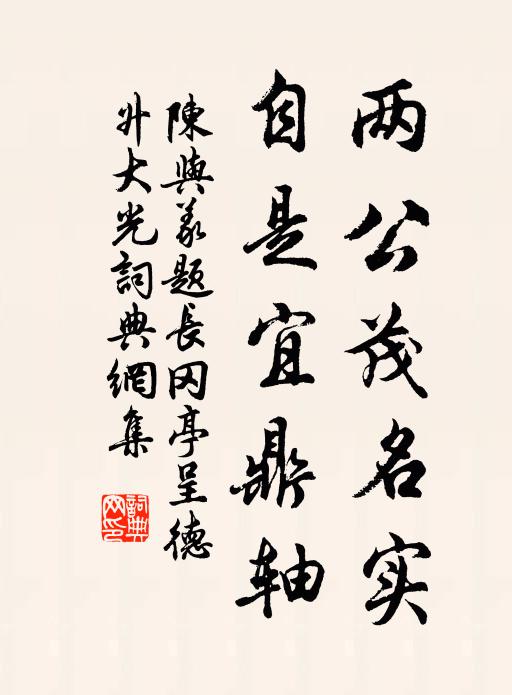 两公茂名实
自是宜鼎轴
陳與義题長冈亭呈德
升大光詞典網集
詞典
网印